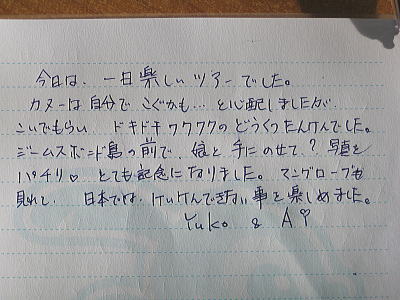 今日は、一日楽しいツアーでした。
カヌーは自分でこぐかも… と心配しましたが、
こいでもらい ドキドキワクワクのどうくつたんけんでした。
ジームスボンド島の前で、娘と手にのせて？写真を
パチリ♡ とても記念になりました。マングローブも
見れし、日本では、けいけんできない事を楽しめました。
Yuko & A♡